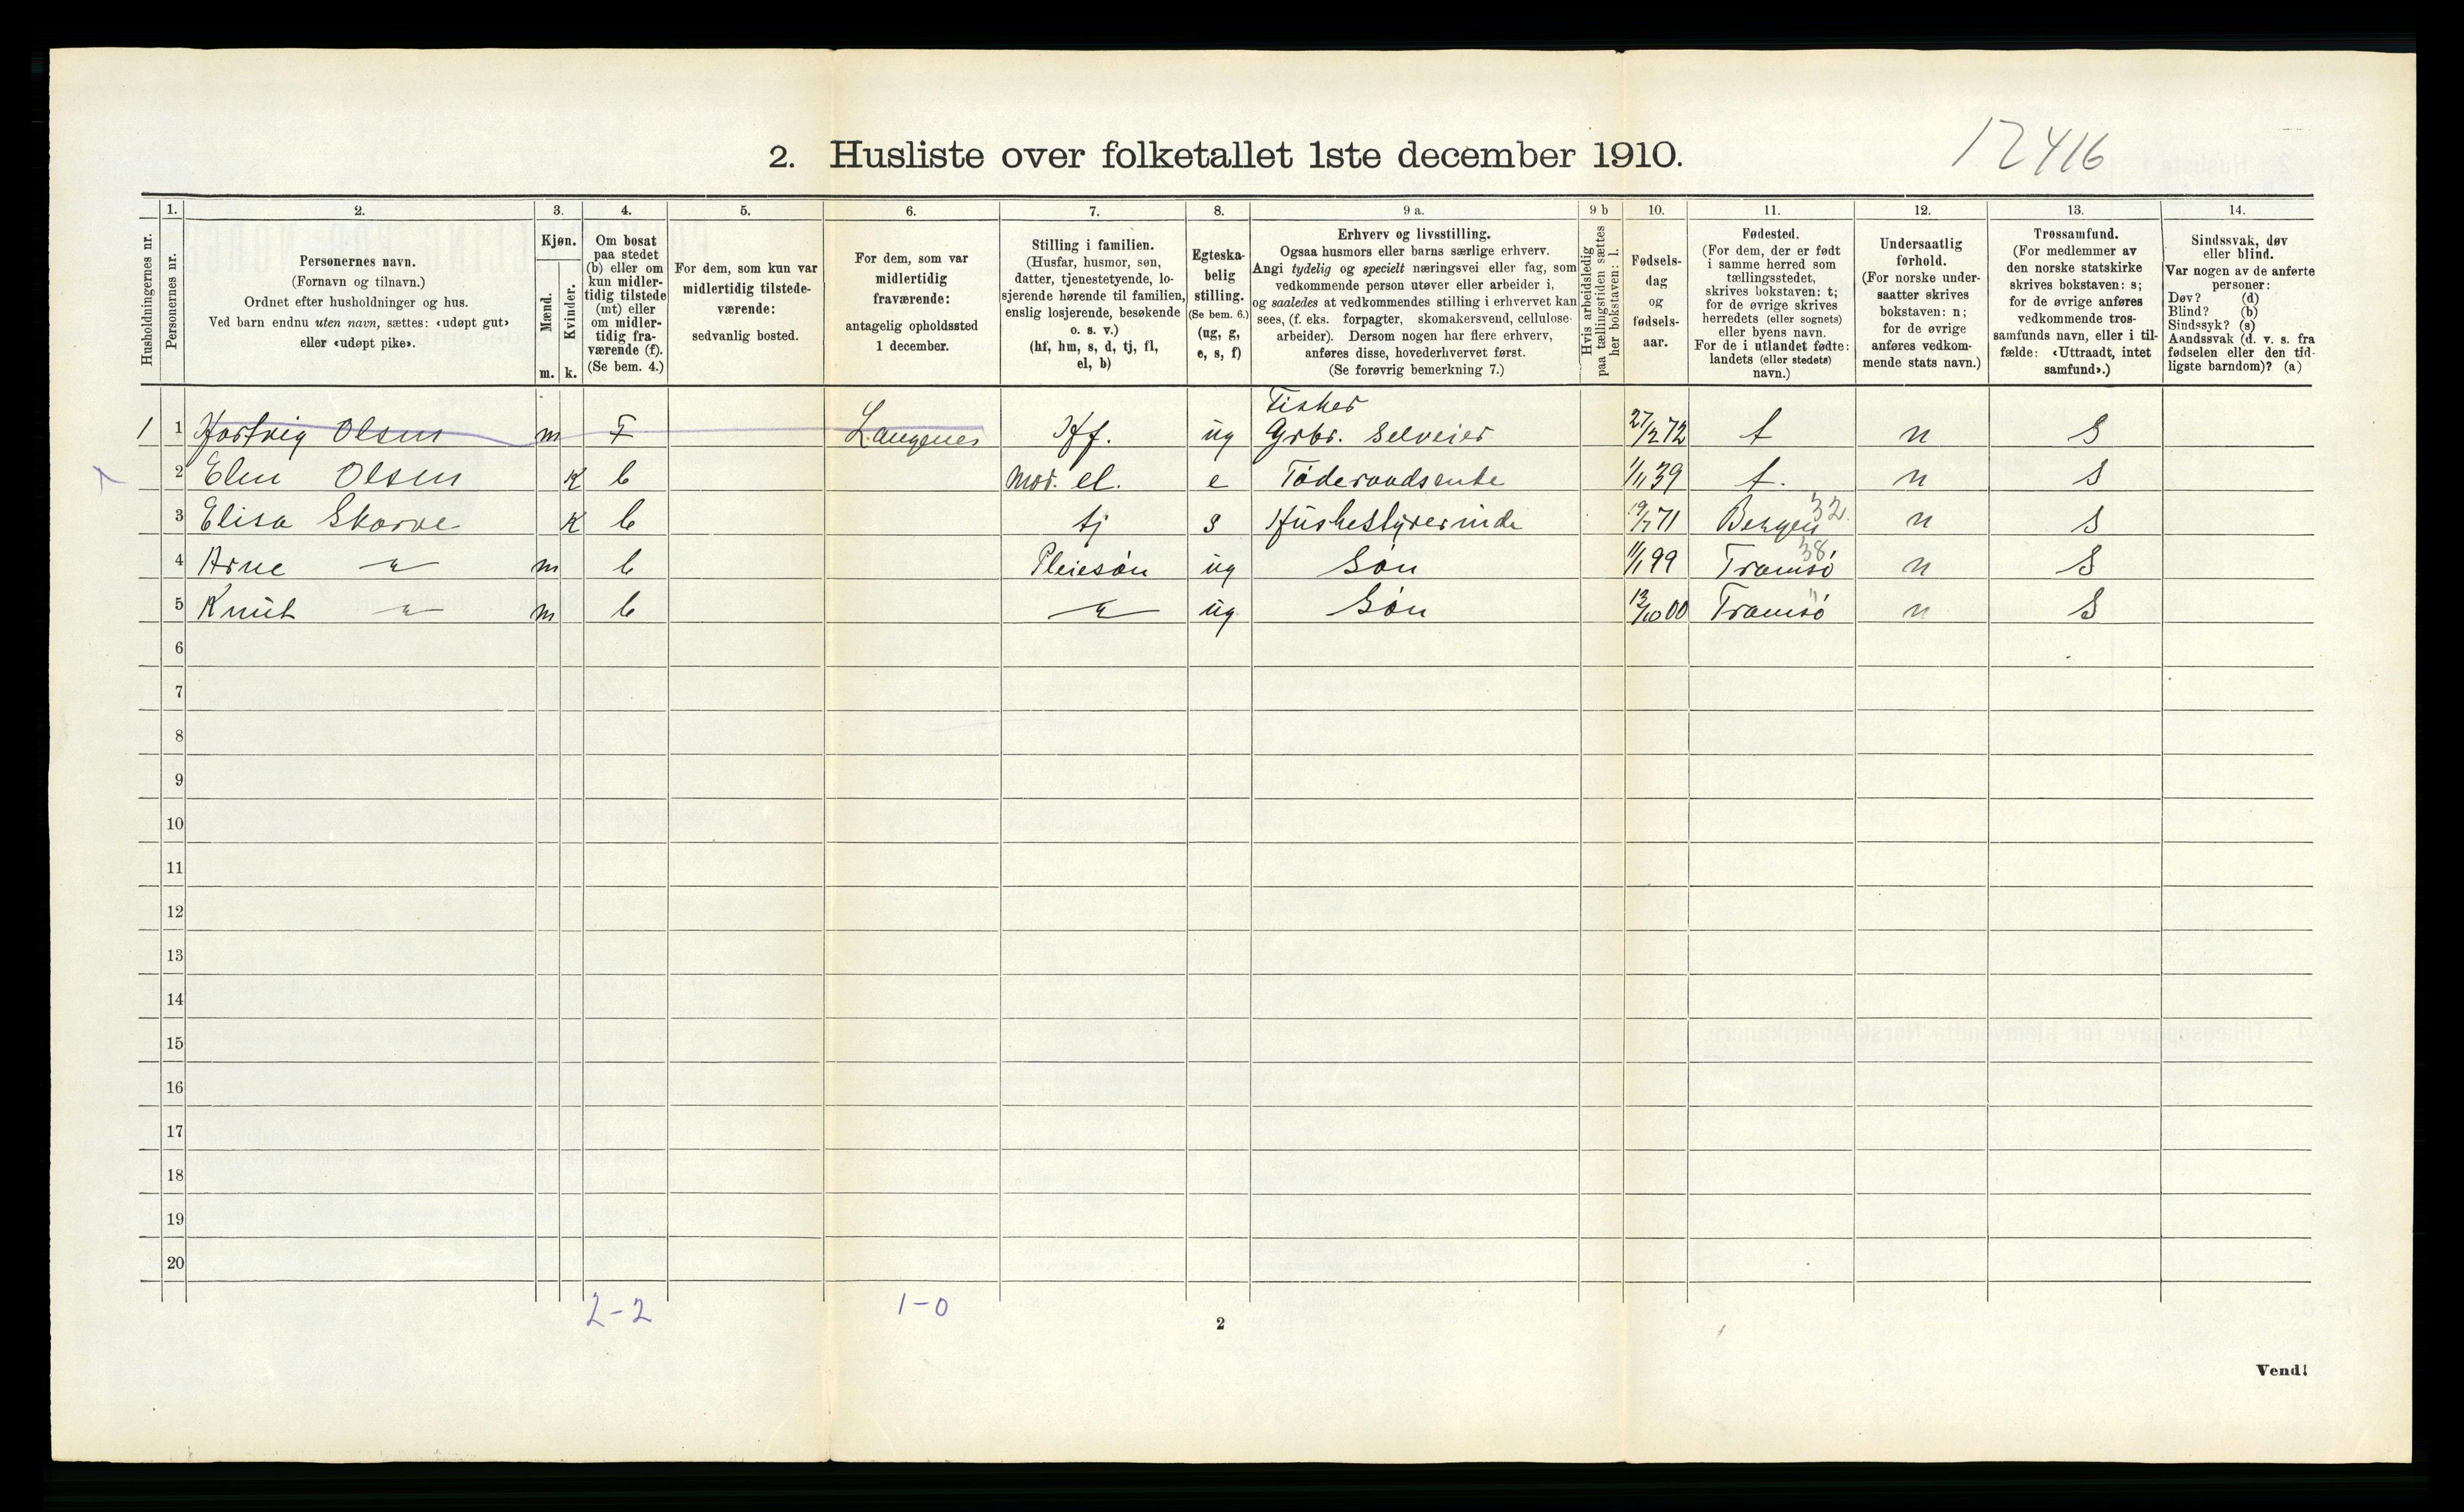 12416
2. Husliste over folketallet 1ste december 1910.
Husholdningernes nr.
1.
Personernes nr.
2.
Personernes navn.
(Fornavn og tilnavn.)
Ordnet efter husholdninger og hus.
Ved barn endnu uten navn, sættes: «udøpt gut»
eller «udøpt pike».
3.
Kjøn.
Mænd.
Kvinder.
m. k.
4.
Om bosat
paa stedet
(b) eller om
kun midler-
tidig tilstede
(mt) eller
om midler-
tidig fra-
værende (f).
(Se bem. 4.)
5.
For dem, som kun var
midlertidig tilstede-
værende:
sedvanlig bosted.
6.
For dem, som var
midlertidig
fraværende:
antagelig opholdssted
1 december.
7.
Stilling i familien.
(Husfar, husmor, søn,
datter, tjenestetyende, lo-
sjerende hørende til familien,
enslig losjerende, besøkende
o. s. v.)
(hf, hm, s, d, tj, fl,
el, b)
8.
Egteska-
belig
stilling.
(Se bem. 6.)
(ug, g,
e, s, f)
9 a.
Erhverv og livsstilling.
Ogsaa husmors eller barns særlige erhverv.
Angi tydelig og specielt næringsvei eller fag, som
vedkommende person utøver eller arbeider i,
og saaledes at vedkommendes stilling i erhvervet kan
sees, (f. eks. forpagter, skomakersvend, cellulose-
arbeider). Dersom nogen har flere erhverv,
anføres disse, hovederhvervet først.
(Se forøvrig bemerkning 7.)
9 b
Hvis arbeidsledig
paa tællingstiden sættes
her bokstaven: l.
10.
Fødsels-
dag
og
fødsels-
aar.
11.
Fødested.
(For dem, der er født
i samme herred som
tællingsstedet,
skrives bokstaven: t;
for de øvrige skrives
herredets (eller sognets)
eller byens navn.
For de i utlandet fødte:
landets (eller stedets)
navn.)
12.
Undersaatlig
forhold.
(For norske under-
saatter skrives
bokstaven: n;
for de øvrige
anføres vedkom-
mende stats navn.)
13.
Trossamfund.
(For medlemmer av
den norske statskirke
skrives bokstaven: s;
for de øvrige anføres
vedkommende tros-
samfunds navn, eller i til-
fælde: «Uttraadt, intet
samfund».)
14.
Sindssvak, døv
eller blind.
Var nogen av de anførte
personer:
Døv? (d)
Blind? (b)
Sindssyk? (s)
Aandssvak (d. v. s. fra
fødselen eller den tid-
ligste barndom)? (a)
Fisker
1 1 Hartvig Olsen m F Langenes Hf. ug Grbr. Selveier 27/2 72 t n S
2 Elen Olsen K b Mor. el. e Føderaadsenke 1/1 39 t. n S
3 Elisa Skarve K b tj s Husbestyrerinde 19/7 71 Bergen 32. n S
4 Arne " m b Pleiesøn ug Søn 11/1 99 Tromsø 38, n S
5 Knut " m b " ug Søn 13/10 00 Tromsø " n S
6
7
8
9
10
11
12
13
14
15
16
17
18
19
20
2-2
1-0
2
Vend!